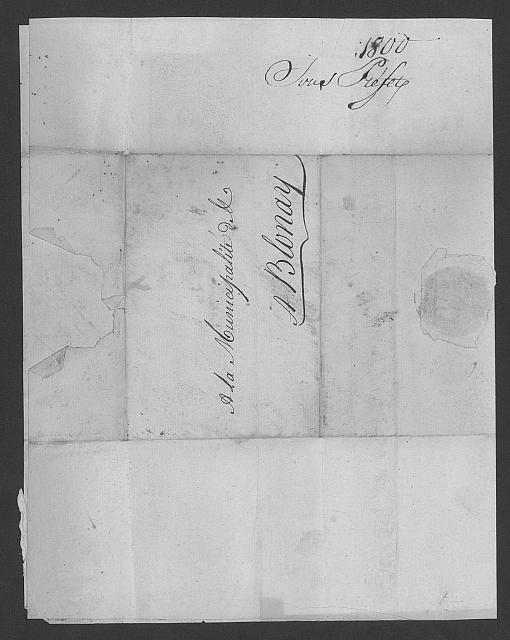 1800
Sous Préfet
A la Municipalité de
A Blonay